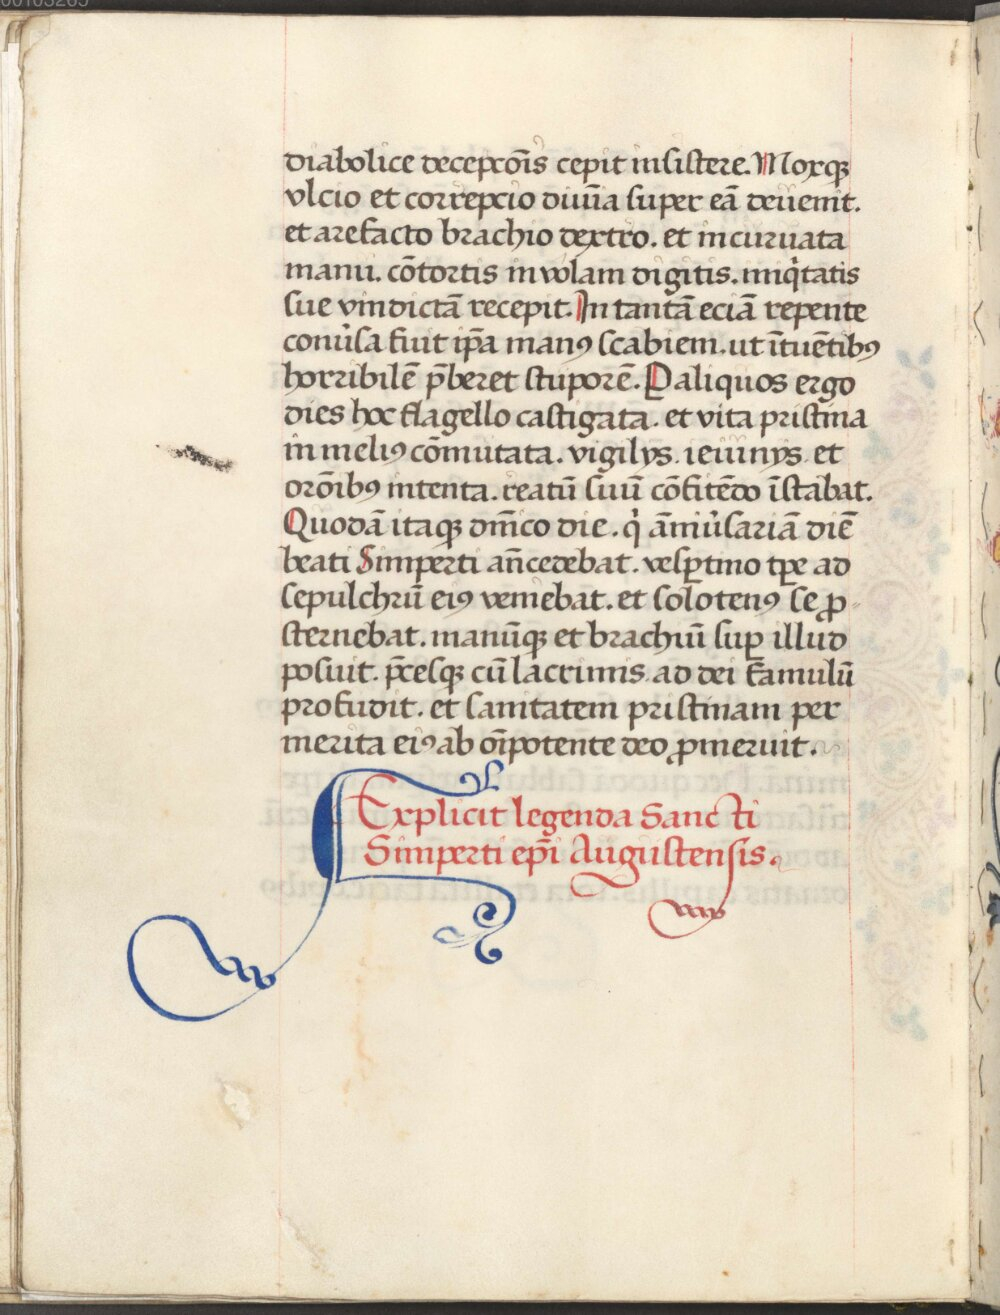 00103265
diabolice decepcōis cepit insistere. Moxqꝫ
vlcio et correpcio diuīa super eā deuenit.
et arefacto brachio dextro. et incuruata
manu. cōtortis in volam digitis. iniqͥtatis
sue vindictā recepit. In tantā eciā repente
conuͥsa fuit ip̄a manꝰ scabiem. ut ītuētibꝰ
horribilē p̄beret stuporē. P aliquos ergo
dies hoc flagello castigata. et vita pristina
in meliꝰ cōmutata. vigilijs. ieiuinijs. et
orōibꝰ intenta. reatū suū cōfitēdo īstabat.
Quodā itaqꝫ dn̄ico die. qͥ āniuͥsariā diē
beati Simperti an̄cedebat. vesꝑtino tp̄e ad
sepulchrū eiꝰ veniebat. et solotenꝰ se ꝓ-
sternebat. manūqꝫ et brachiū suꝑ illud
posuit. p̄cesqꝫ cū lacrimis. ad dei famulū
profudit. et sanitatem pristinam per
merita eiꝰ ab oīpotente deo ꝓmeruit.
Explicit legenda Sancti
Simperti ep̄i Augustensis.